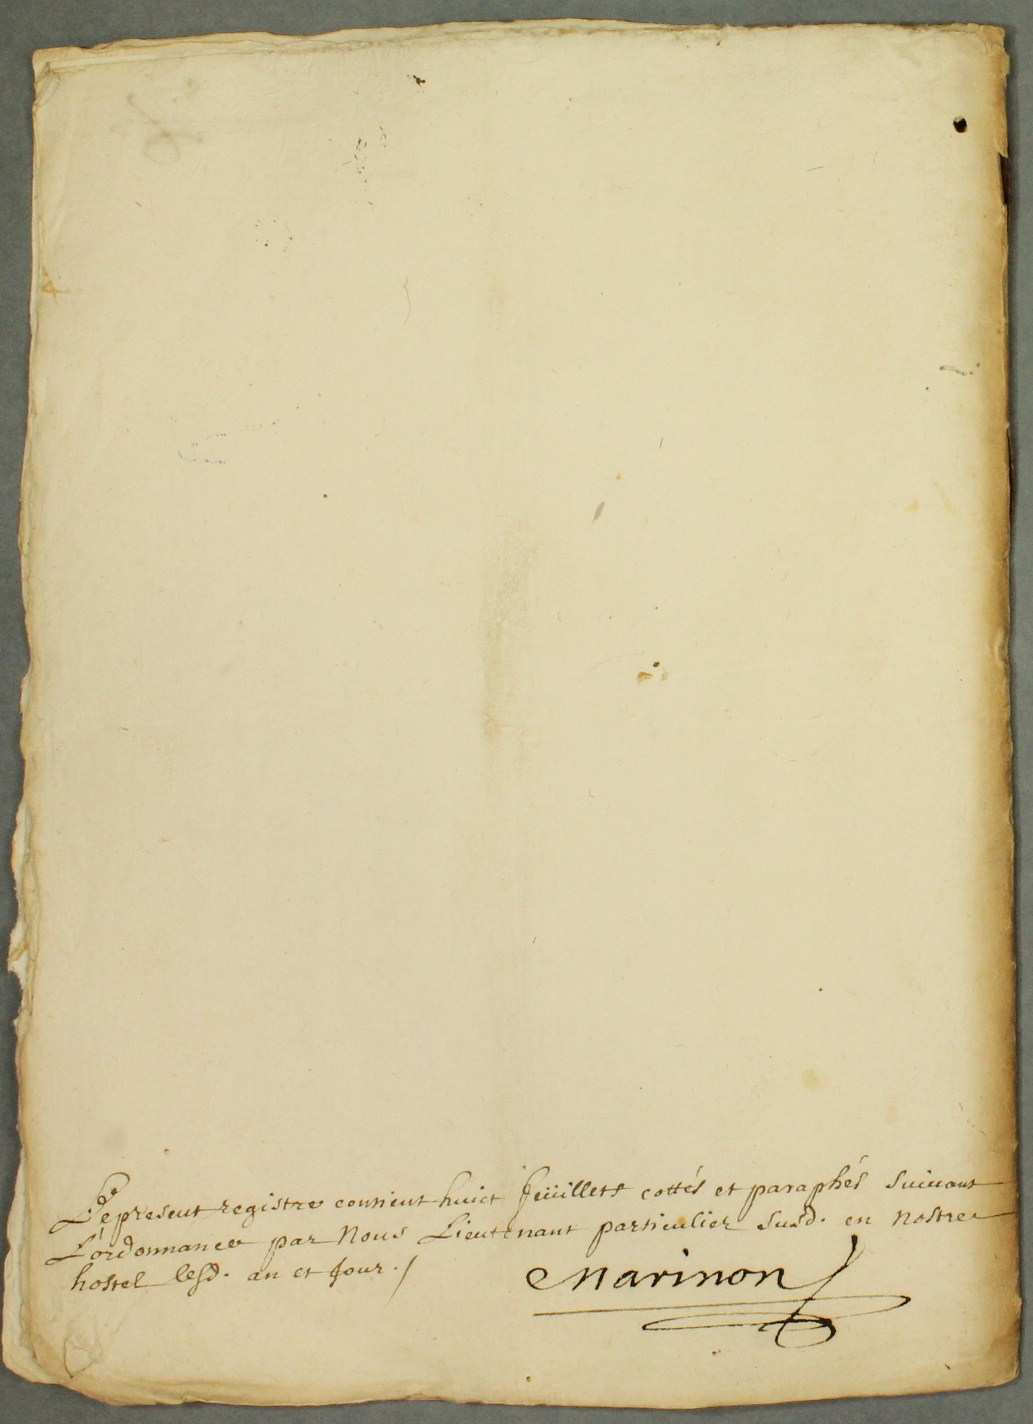 Le present registre contient huict feüillets cottés et paraphés suivant
L'ordonnance par Nous Lieutenant particulier susd. en nostre
hostel lesd. an et Jour ./
Marinon